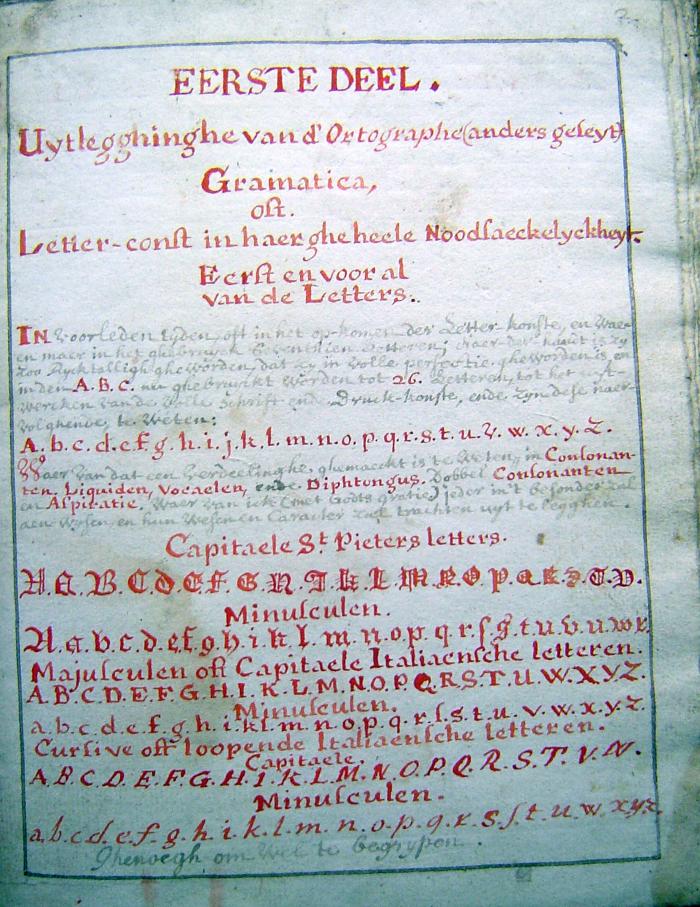 EERSTE DEEL.
Uytlegghinghe van d'Ortographe (anders geseyt)
Gramatica,
oft.
Letter-const in haer gheheele Noodsaeckelyckheyt.
Eerst en voor al
van de Letters.
IN voorleden tyden, oft in het op-komen der Letter-konste, en
en maer in het ghebruyck Letteren;
zoo Rycktalligh gheworden, dat zy in volle perfectie gheworden is, en
inden A.B.C. nu ghebruyckt worden tot 26. Letteren, tot het uyt-
wercken van de volle schrift ende Druck-konste, ende zyn dese naer-
volghende, te weten:
A.b.c.d.e.f.g.h.i.j.k.l.m.n.o.p.q.r.s.t.u.v.w.x.y.z.
Waer van dat een verdeelinghe ghemaeckt is te weten, in Consonan-
ten, Liquiden, Vocaelen, ende Diphtongus. Dobbel Consonanten
en Aspiratie. Waer van ick (met Godts gratie) jeder in't besonder zal
aen wysen, en hun wesen en Caracter zal trachten uyt te legghen.
Capitaele St. Pieters letters.
A.a.B.C.D.E.F.G.H.I.K.L.M.N.O.P.Q.R.S.T.V.
Minusculen.
A.a.b.c.d.e.f.g.h.i.k.l.m.n.o.p.q.r.ſ.s.t.u.v.u.w.x.
Majusculen oft Capitaele Italiaensche letteren.
A.B.C.D.E.F.G.H.I.K.L.M.N.O.P.Q.R.S.T.U.W.X.Y.Z.
Minusculen.
a.b.c.d.e.f.g.h.i.k.l.m.n.o.p.q.r.ſ.s.t.u.v.w.x.y.z.
Cursive oft loopende Italiaensche letteren.
Capitaele.
A.B.C.D.E.F.G.H.I.K.L.M.N.O.P.Q.R.S.T.V.W.
Minusculen.
a.b.c.d.e.f.g.h.i.k.l.m.n.o.p.q.r.s.ſ.t.u.w.x.y.z.
Ghenoegh om wel te begrypen.